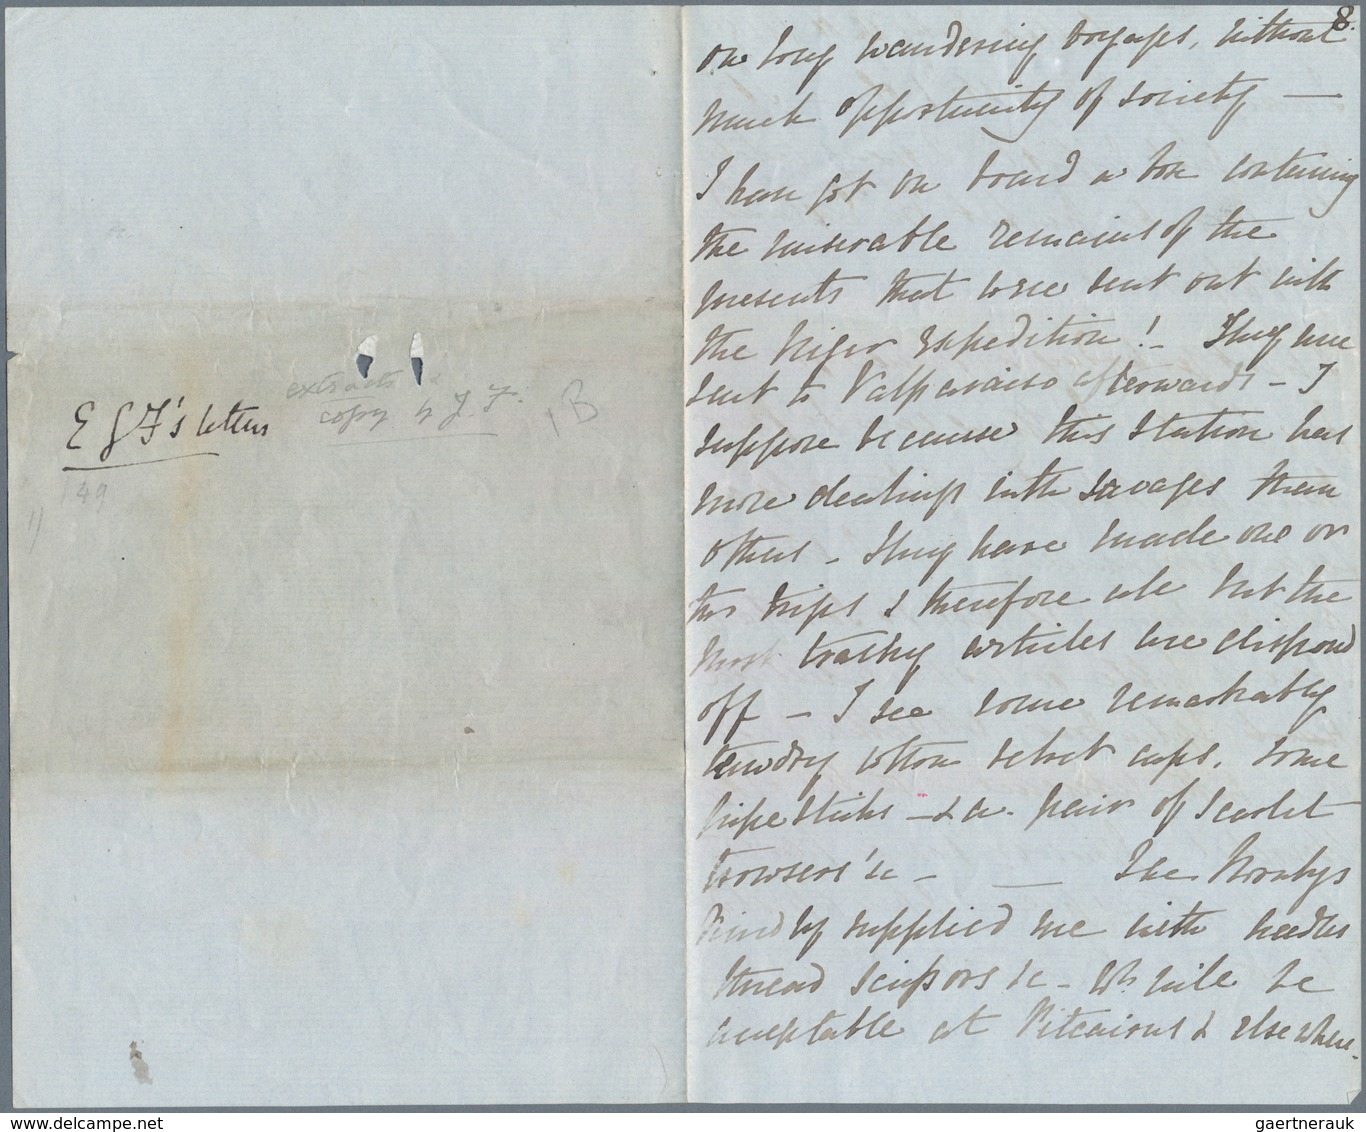 E G F's letters
extracts &
copy by J. F.
1B
49
8.
on long wandering voyages, without
much opportunity of society —
I have got on board a box containing
the miserable remains of the
presents that were sent out with
the Niger Expedition! - They were
sent to Valparaiso afterwards - I
suppose because this station has
more dealings with savages than
others - They have made one or
two trips & therefore all but the
most trashy articles are disposed
off - I see some remarkably
tawdry cotton velvet caps, some
pipe sticks - & a pair of Scarlet
trowsers &c - — The
kindly supplied me with needles
thread scissors &c - wh will be
acceptable at Pitcairns & elsewhere.
www.delcampe.net
gaertnerauk